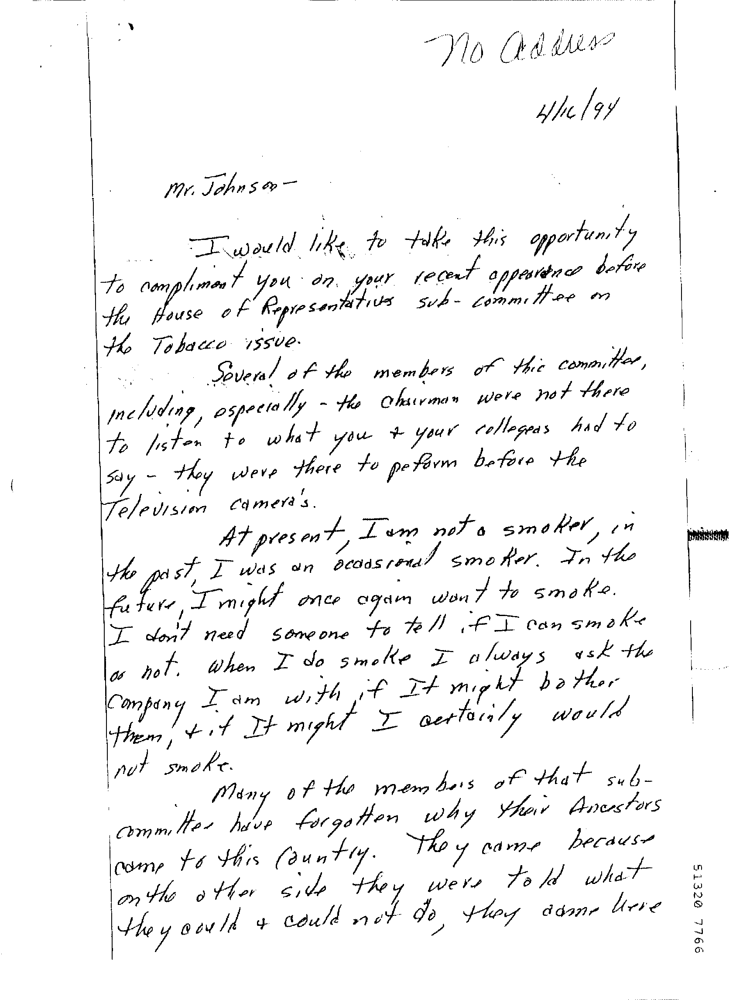 No Address
4/16/94
Mr. Johnson -
I would like to take this opportunity
to compliment you on your recent appearance before
the House of Representatives sub-committee on
the Tobacco issue.
Several of the members of this committee,
including, especially - the Chairman were not there
to listen to what you & your collegeas had to
say - they were there to peform before the
Television camera's.
At present, I am not a smoker, in
the past, I was an occassional smoker. In the
future, I might once again want to smoke.
I don't need someone to tell if I can smoke
or not. When I do smoke I always ask the
Company I am with if It might bother
them, & if It might I certainly would
not smoke.
Many of the members of that sub-
committee have forgotten why their Ancestors
came to this Country. They came because
on the other side they were told what
they could & could not do, they came here
51320 7766